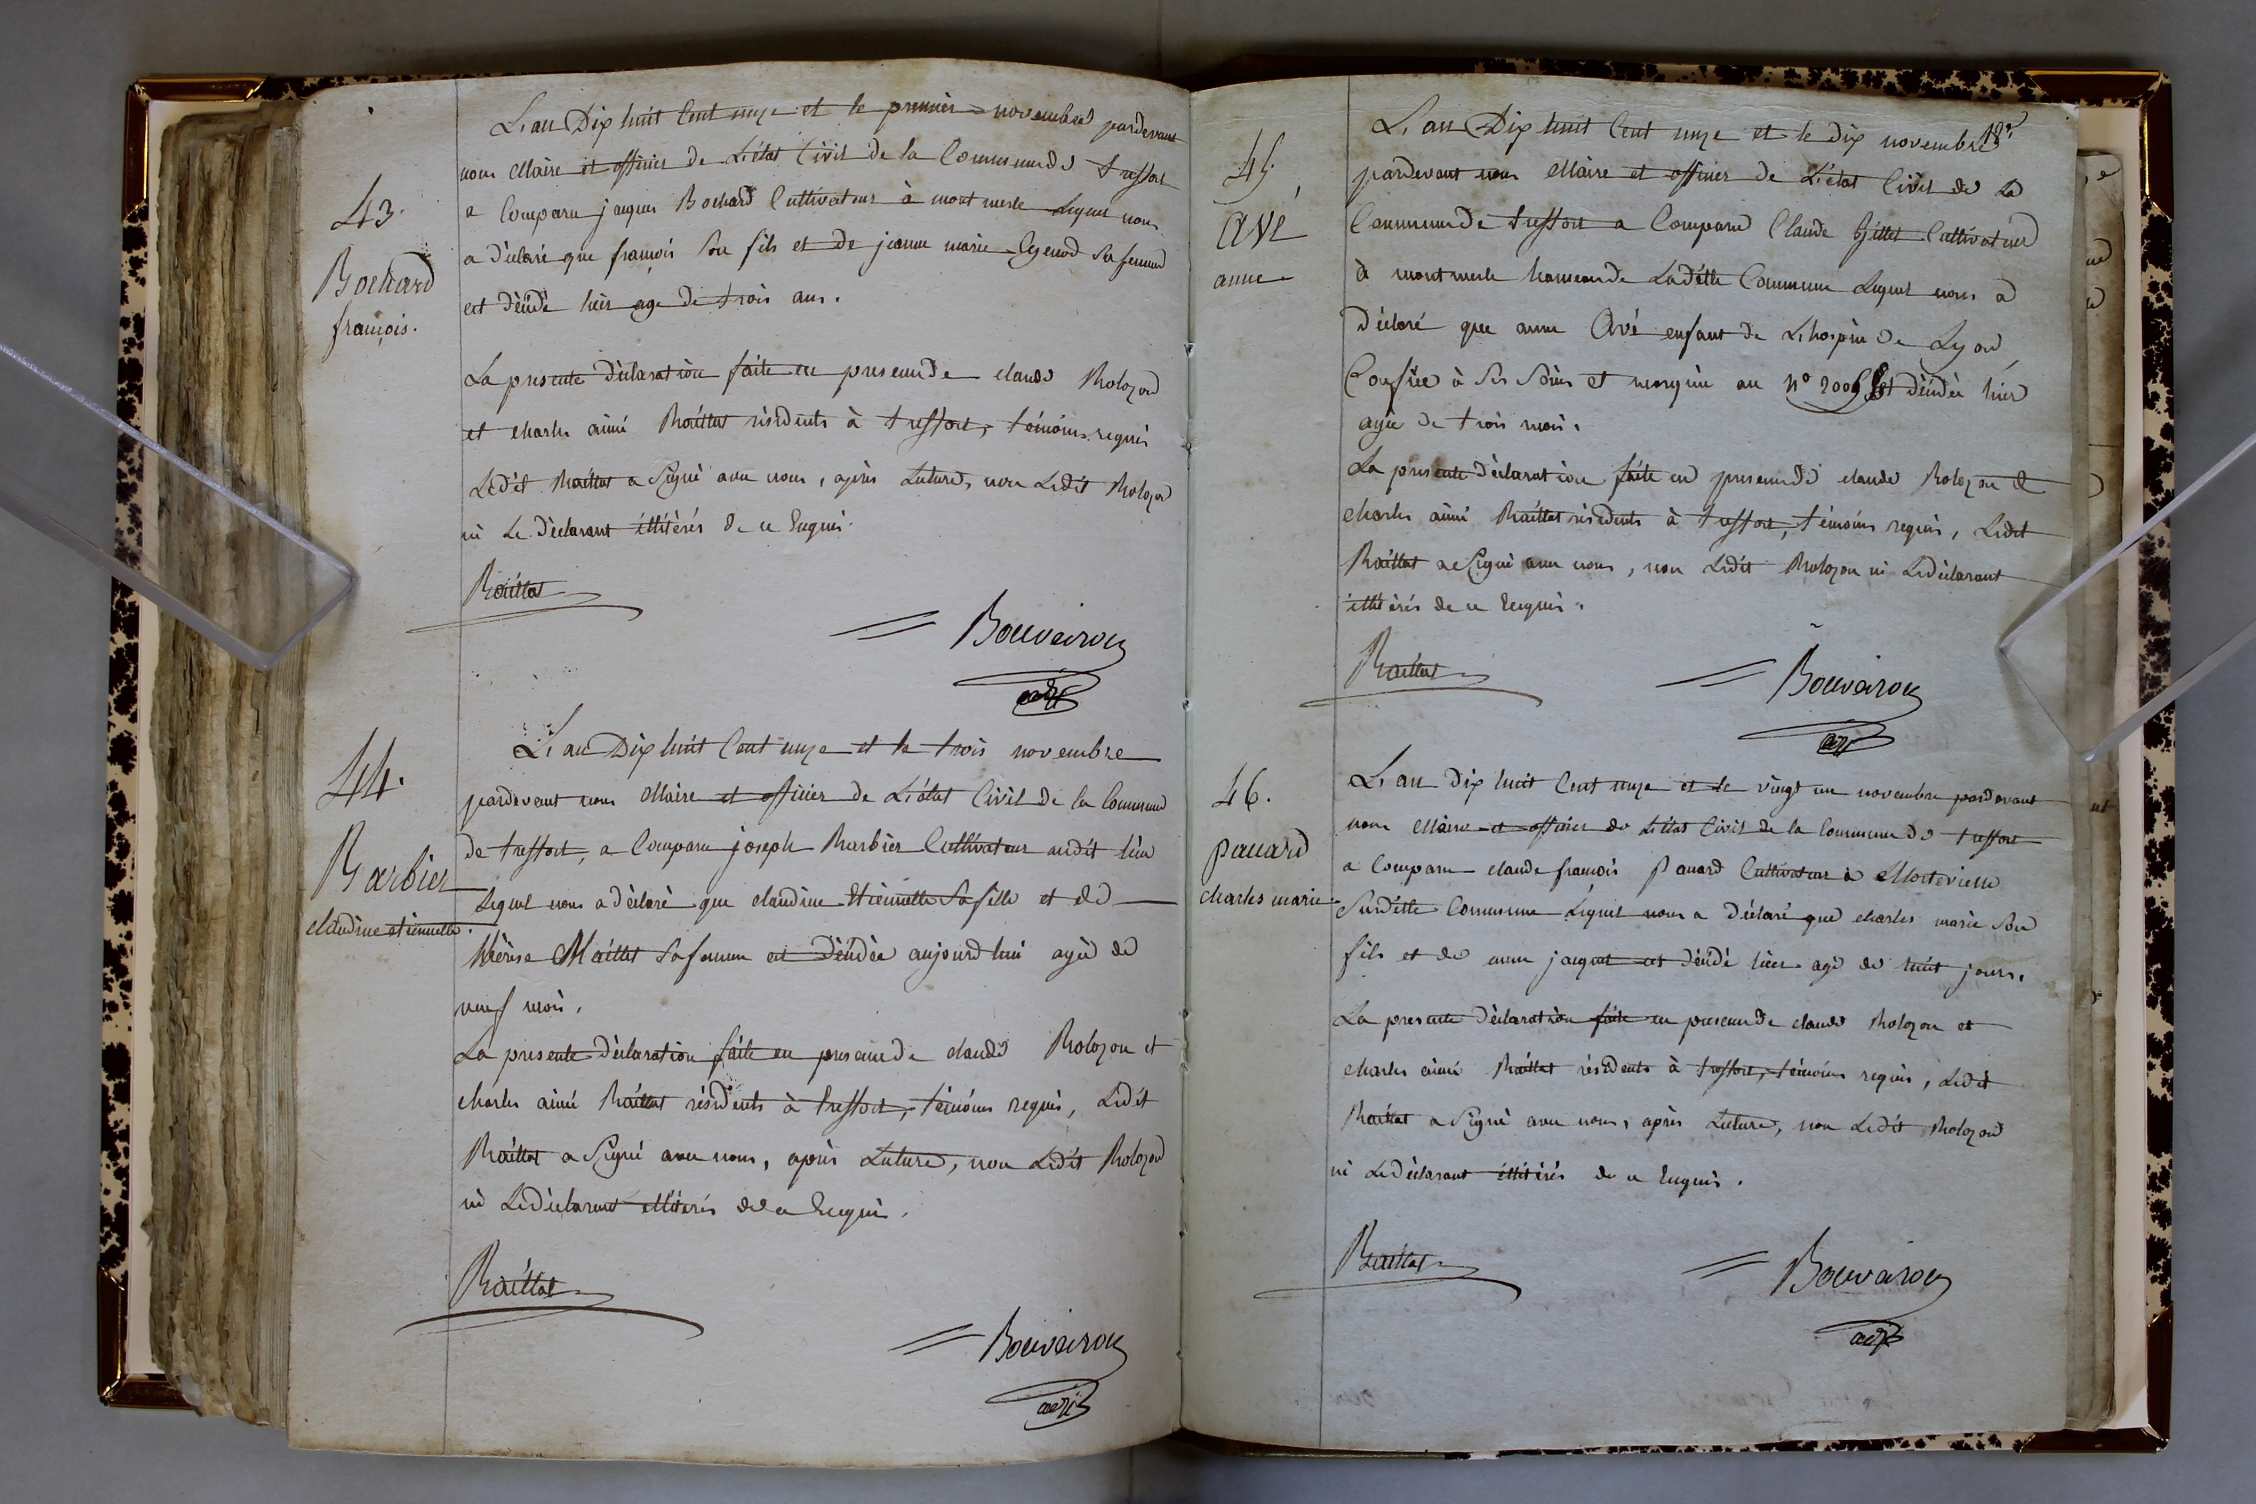 43.
Bochard
françois.
L'an Dix huit Cent onze et le premier novembre pardevant
nous Maire et officier de L'état Civil de la Commune de treffort
a Comparu jaques Bochard Cultivateur à mont merle Lequel nous
a déclaré que françois son fils et de jeanne marie sa femme
est décédé hier agé de trois ans.
La presente déclaration faite en presence de claude Rolozon
et charles aimé Raillat résidents à treffort, témoins requis
Ledit Raillat a Signé avec nous, après Lecture, non Ledit Rolozon
ni Le déclarant illitérés de ce Enquis.
Raillat
Bouveiron
adjt
44.
Barbier
claudine etiennette.
L'an Dix huit Cent onze et le trois novembre
pardevant nous Maire et officier de L'état Civil de la Commune
de treffort, a Comparu joseph Barbier Cultivateur audit lieu
Lequel nous a déclaré que claudine Etiennette Sa fille et de
thérèse Maillet Sa femme est décédée aujourd'hui agée de
neuf mois.
La presente déclaration faite en presence de claude Rolozon et
charles aimé Raillat résidents à treffort, témoins requis, Ledit
Raillat a Signé avec nous, après Lecture, non Ledit Rolozon
ni Le déclarant illitérés de ce Enquis.
Raillat
Bouveiron
adjt
45.
Avé
anne
L'an Dix huit Cent onze et le dix novembre
pardevant nous Maire et officier de L'état Civil de la
Commune de treffort a Comparu Claude Gillet Cultivateur
à mont merle hameau de Laditte Commune Lequel nous a
Déclaré que anne Avé enfant de L'hospice de Lyon
Confiée à Ses Soins et marquée au n° est décédée hier
agée de trois mois.
La presente déclaration faite en presence de claude Rolozon et
charles aimé Raillat résidents à treffort, témoins requis, Ledit
Raillat a Signé avec nous, non Ledit Rolozon ni Le déclarant
illitérés de ce Enquis.
Raillat
Bouveiron
adjt
46.
Pauard
charles marie
L'an Dix huit Cent onze et le vingt un novembre pardevant
nous Maire et officier de L'état Civil de la Commune de treffort
a Comparu claude françois Pauard Cultivateur à Montevielle
Susditte Commune Lequel nous a déclaré que charles marie Son
fils et de anne jaquet est décédé hier agé de huit jours.
La presente déclaration faite en presence de claude Rolozon et
charles aimé Raillat résidents à treffort, témoins requis, Ledit
Raillat a Signé avec nous, après Lecture, non Ledit Rolozon
ni Le déclarant illitérés de ce Enquis.
Raillat
Bouveiron
adjt